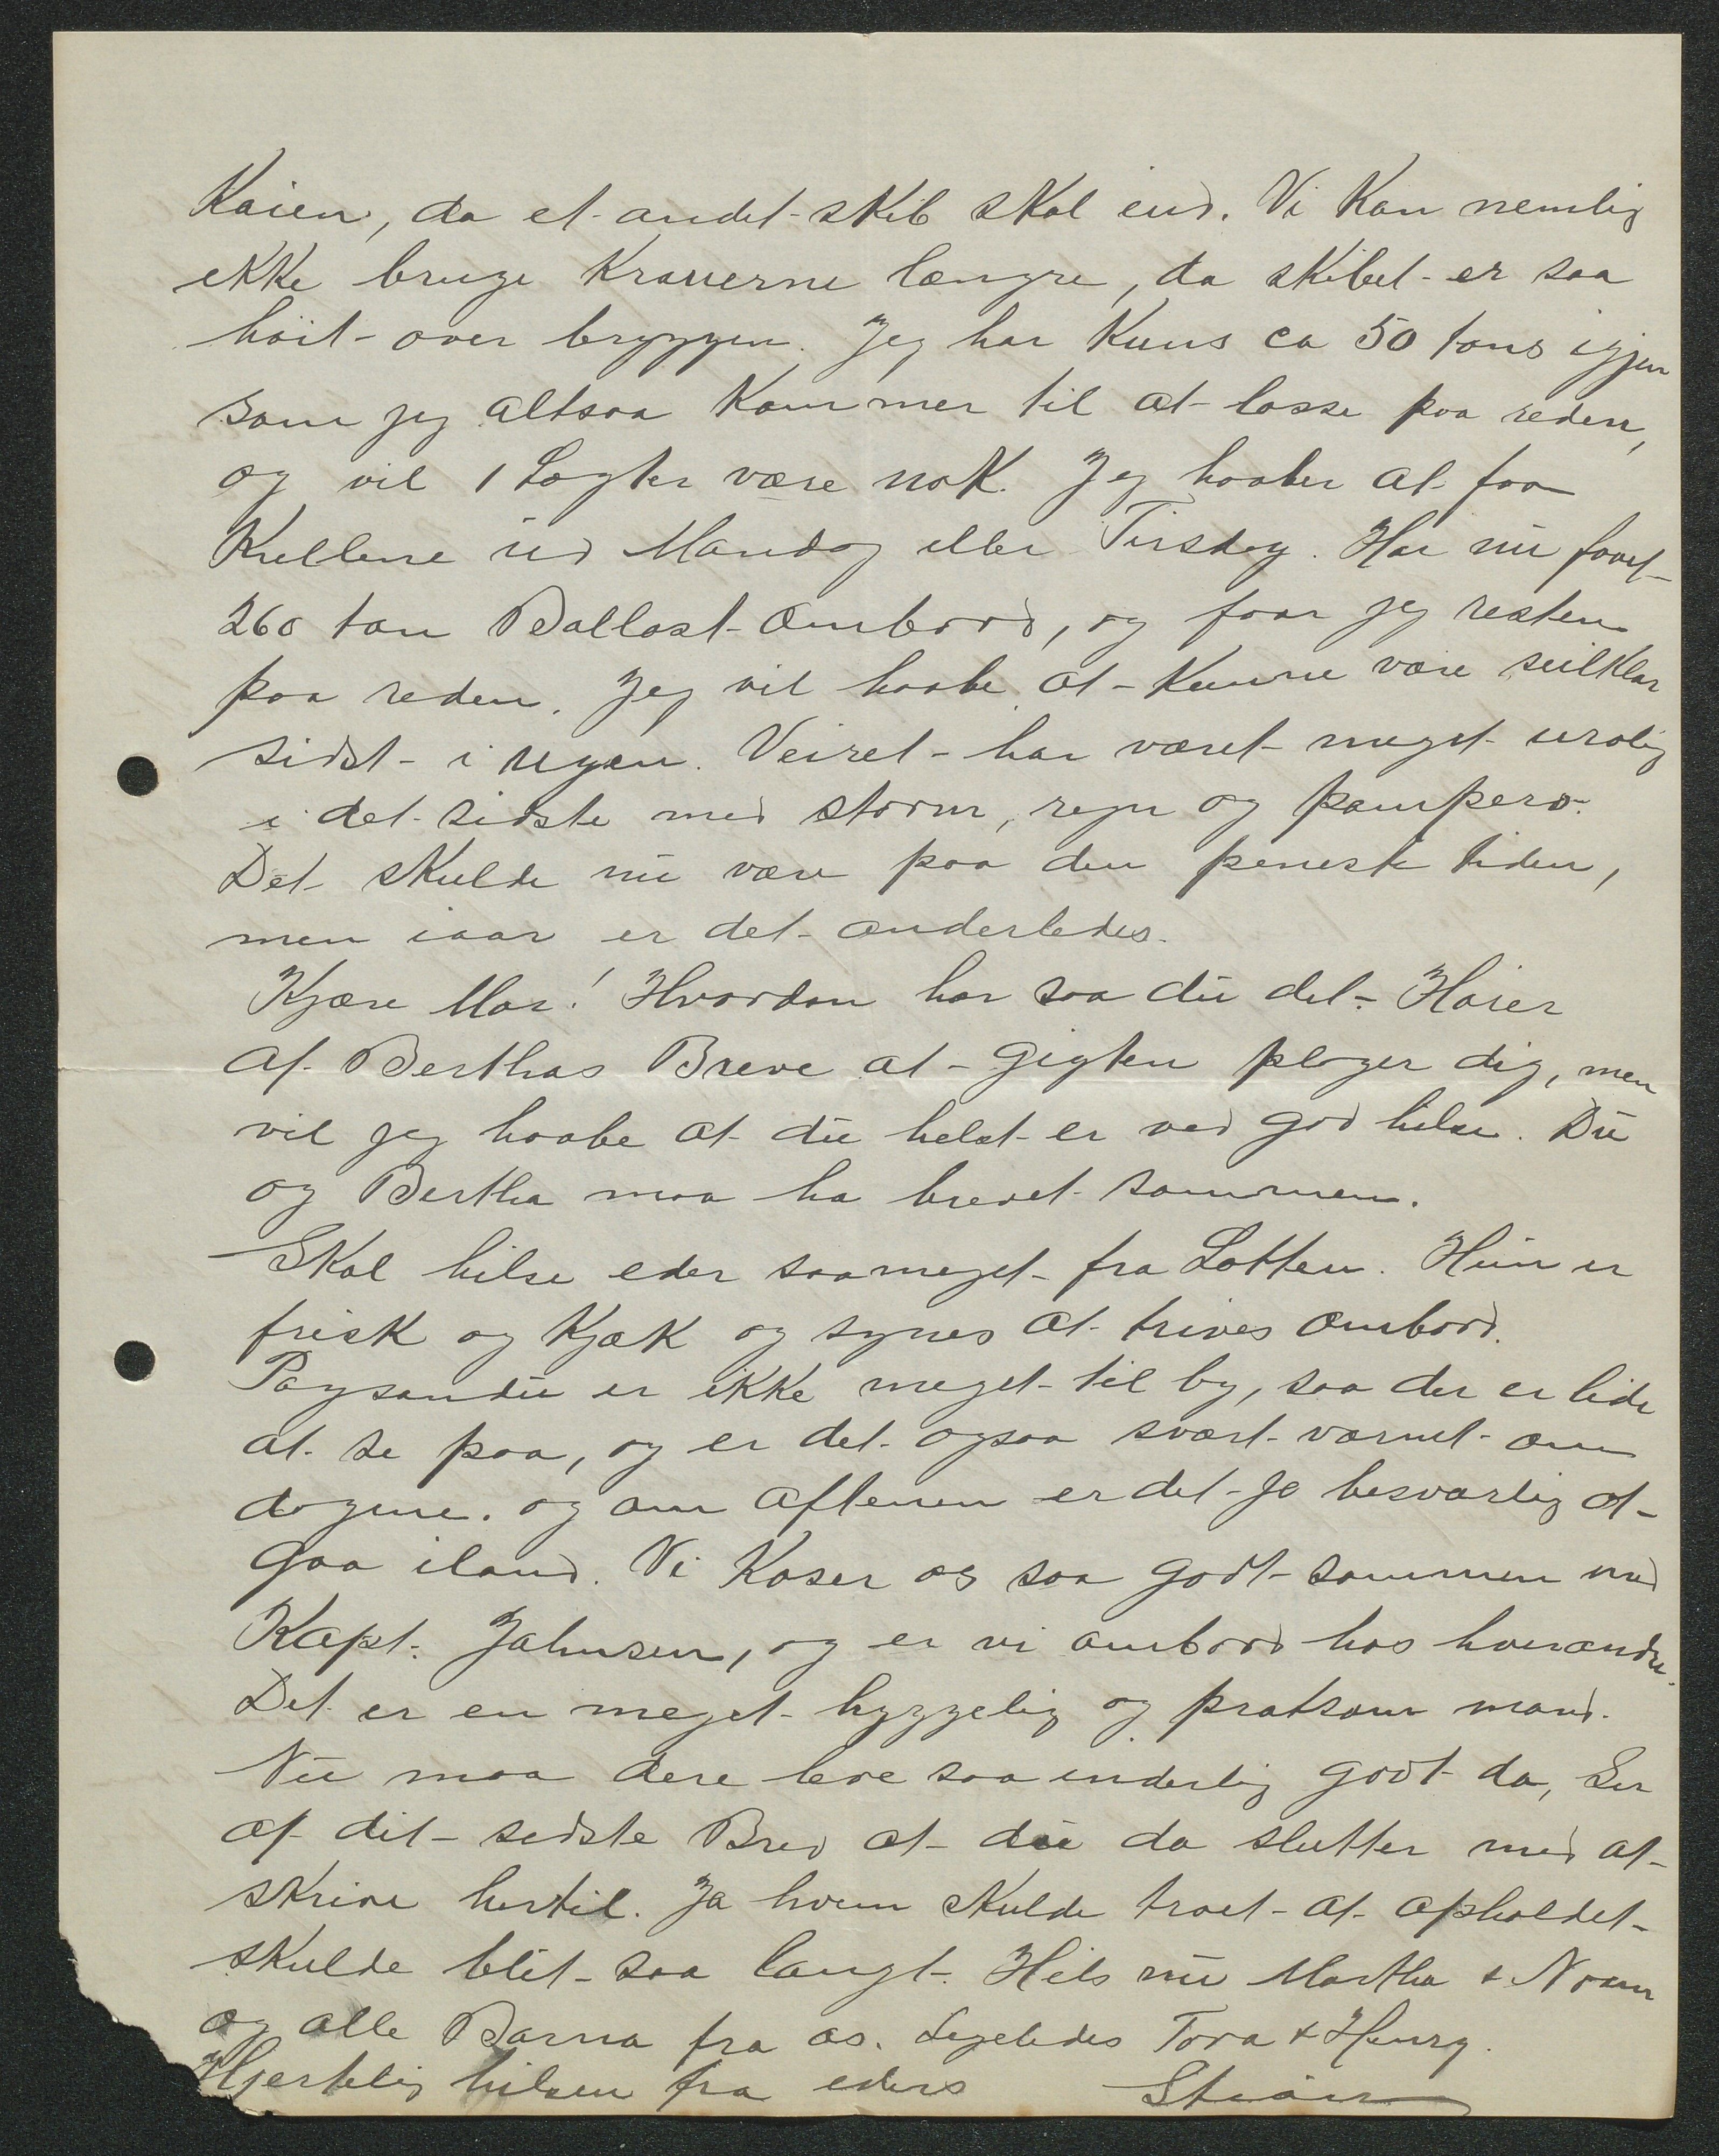 Kaien, da et andet skib skal ind. Vi kan nemlig
ikke bruge Kranerne længre, da skibet er saa
höit over bryggen. Jeg har kuns ca 50 tons igjen
som jeg altsaa kommer til at losse paa reden,
og vil 1 Lægter være nok. Jeg haaber at faa
Kullene ud Mandag eller Tirsdag. Har nu faaet
260 ton Ballast ombord, og faar jeg resten
paa reden. Jeg vil haabe at kunne være seilklar
sidst i ugen. Veiret har været meget urolig
i det sidste med storm, regn og pampero.
Det skulde nu være paa den peneste tiden,
men iaar er det anderledes.
Kjære Mor! Hvordan har saa du det? Hører
af Berthas Breve at gigten plager dig, men
vil jeg haabe at du helst er ved god helse. Du
og Bertha maa ha brevet sammen.
Skal hilse eder saameget fra Lotten. Hun er
frisk og kjæk og synes at trives ombord.
Paysandu er ikke meget til by, saa der er lide
at se paa, og er det ogsaa svært varmt om
dagene. og om aftenen er det jo besværlig at
gaa iland. Vi koser os saa godt sammen med
Kapt. Jahnsen, og er vi ombord hos hverandre.
Det er en meget hyggelig og pratsom mand.
Nu maa dere leve saa inderlig godt da, Ser
af dit sidste Brev at du da slutter med at
skrive hertil. Ja hvem skulde troet at opholdet
skulde blit saa langt. Hils nu Martha &
og alle Barna fra os. Ligeledes Tora & Henry.
Hjertelig hilsen fra eders